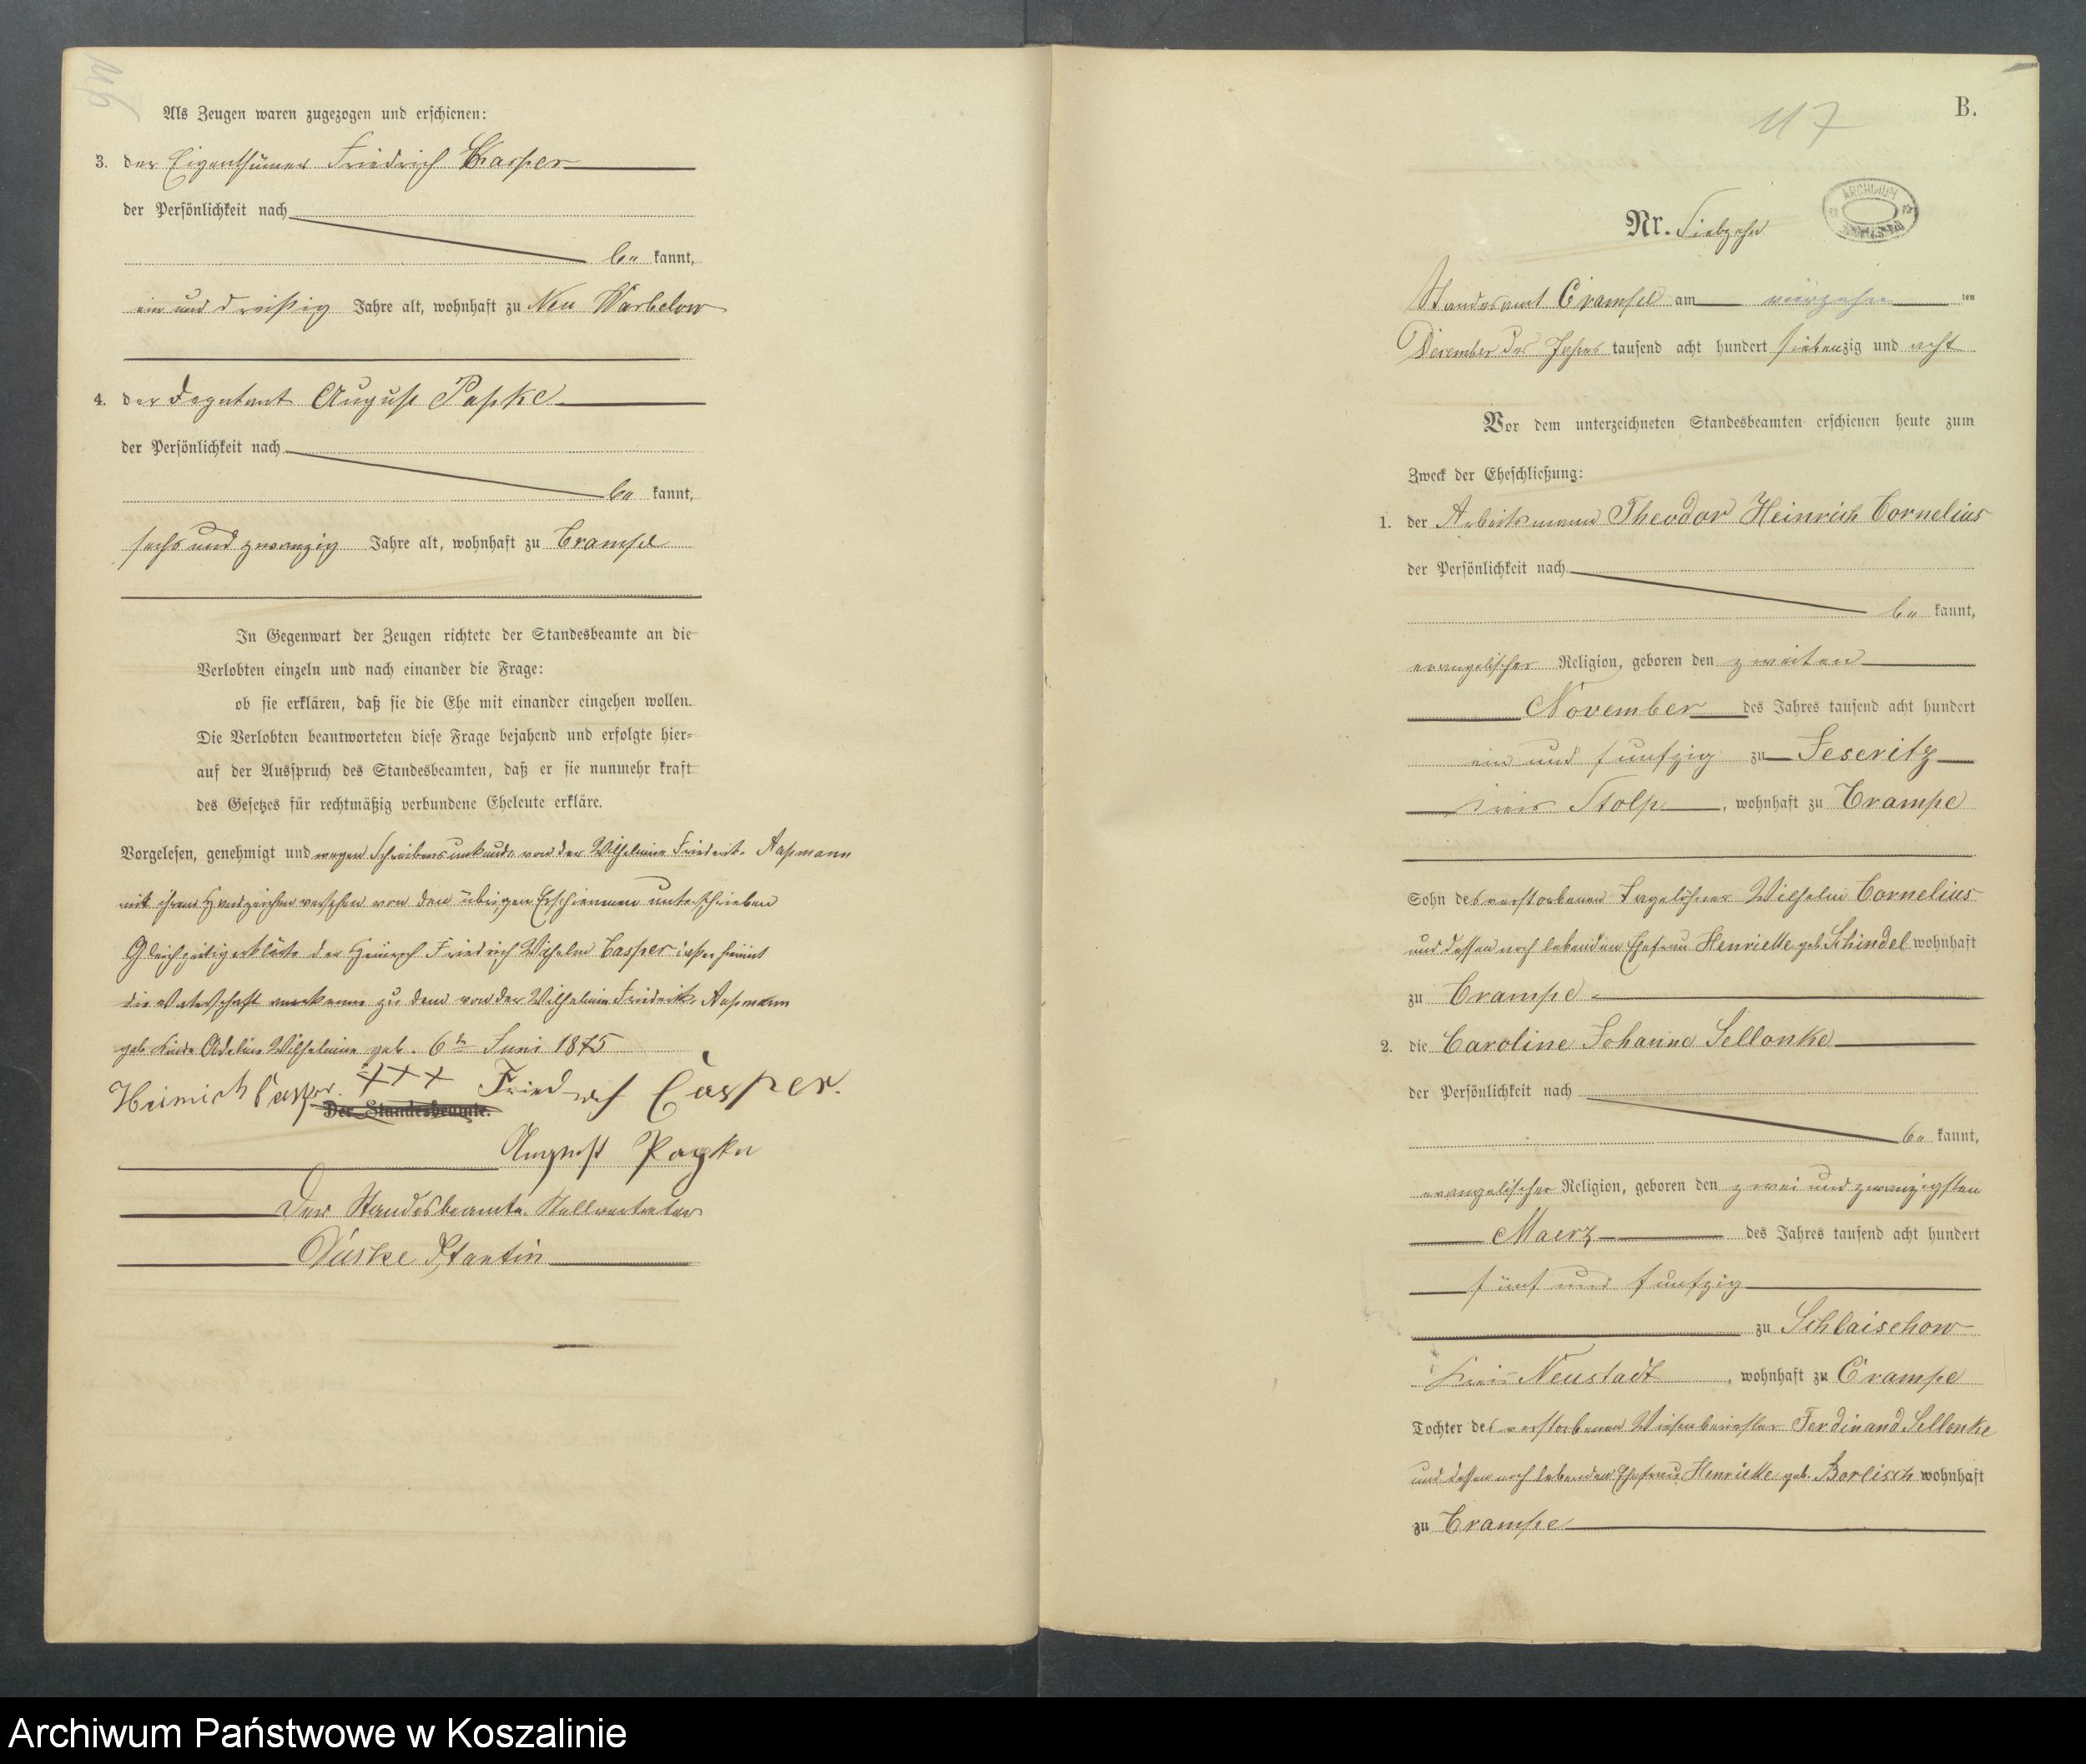 Als Zeugen waren zugezogen und erschienen:
3. der Eigenthümer Friedrich Casper
der Persönlichkeit nach
be kannt,
ein und dreißig Jahre alt, wohnhaft zu Neu Warbelow
4. der Deputant August Papke
der Persönlichkeit nach
be kannt,
sechs und zwanzig Jahre alt, wohnhaft zu Crampe
In Gegenwart der Zeugen richtete der Standesbeamte an die
Verlobten einzeln und nach einander die Frage:
ob sie erklären, daß sie die Ehe mit einander eingehen wollen.
Die Verlobten beantworteten diese Frage bejahend und erfolgte hier-
auf der Ausspruch des Standesbeamten, daß er sie nunmehr kraft
des Gesetzes für rechtmäßig verbundene Eheleute erkläre.
Vorgelesen, genehmigt und wegen Schreibensunkunde von der Wilhelmine Friederike Aaßmann
mit ihrem Handzeichen versehen von den übrigen Erschienenen unterschrieben
Gleichzeitig erklärte der Heinrich Friedrich Wilhelm Casper daß er hiemit
die Vaterschaft anerkenne zu dem von der Wilhelmine Friederike Aaßmann
geb Kinde Wilhelmine geb. 6 Juni 1875
Heinrich Casper. +++ Friedrich Casper.
Der Standesbeamte.
August Papke
Der Standesbeamte Stellvertreter
117
B.
ARCHIWUM
Nr. Siebzehn
Standesamt Crampe am vierzehn ten
December des Jahres tausend acht hundert siebenzig und acht
Vor dem unterzeichneten Standesbeamten erschienen heute zum
Zweck der Eheschließung:
1. der Arbeitsmann Theodor Heinrich Cornelius
der Persönlichkeit nach
be kannt,
evangelischer Religion, geboren den zweiten
November des Jahres tausend acht hundert
ein und funfzig zu Jeseritz
Kreis Stolp, wohnhaft zu Crampe
Sohn des verstorbenen Tagelöhner Wilhelm Cornelius
und dessen noch lebenden Ehefrau Henriette geb Schindel wohnhaft
zu Crampe
2. die Caroline Johanne Sellonke
der Persönlichkeit nach
be kannt,
evangelischer Religion, geboren den zwei und zwanzigsten
Maerz des Jahres tausend acht hundert
fünf und funfzig
zu Schlaischow
Kreis Neustadt, wohnhaft zu Crampe
Tochter des verstorbenen Ferdinand Sellonke
und dessen noch lebenden Ehefrau Henriette geb. Borlisch wohnhaft
zu Crampe
Archiwum Państwowe w Koszalinie